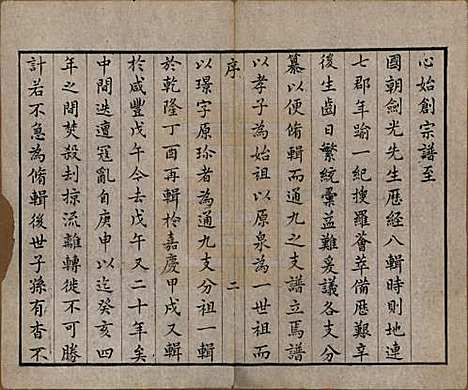 心始創宗譜至
國朝劍光先生歷經八輯時則地連
七郡年踰一紀搜羅薈萃備歷艱辛
後生齒日繁統彙益難爰議各支分
纂以便脩輯而通九之支譜立焉譜
以孝子為始祖以原泉為一世祖而
序 二
以璟字原珎者為通九支分祖一輯
於乾隆丁酉再輯於嘉慶甲戌又輯
於咸豐戊午今去戊午又二十年矣
中間迭遭寇亂自庚申以迄癸亥四
年之間焚殺刦掠流離轉徙不可勝
計若不急為脩輯後世子孫有杳不